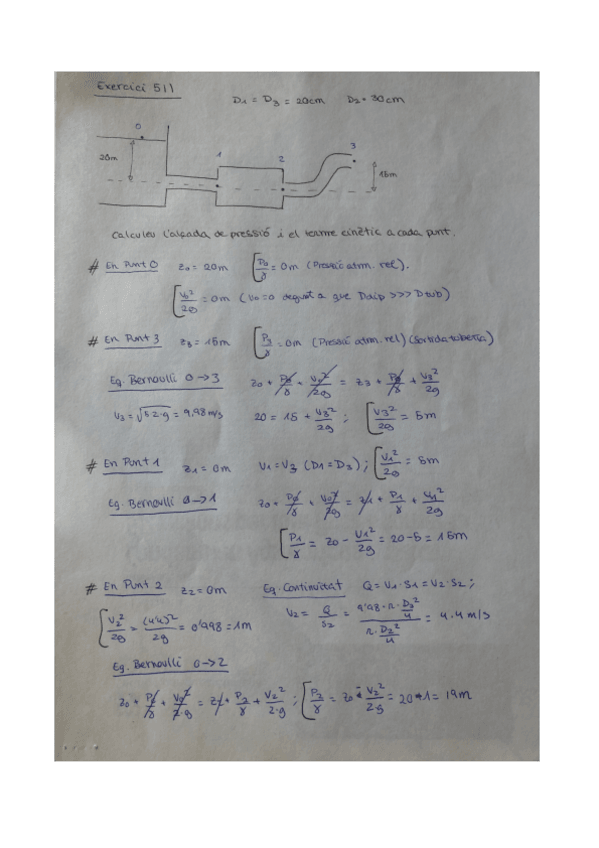 Exercici 5|1
D1 = D3 = 20cm D2 = 30cm
0
20m
1
2
3
15m
Calculeu l'alçada de pressió i el terme cinètic a cada punt.
# En Punt 0 z0 = 20m [P0/γ = 0m (Pressió atm. rel).
[v0²/2g = 0m (v0=0 degut a que Ddip >>> Dtub)
# En Punt 3 z3 = 15m [P3/γ = 0m (Pressió atm. rel) (Sortida tuberia)
Eq. Bernoulli 0→3 z0 + P0/γ + v0²/2g = z3 + P3/γ + v3²/2g
v3 = √5·2·g = 9,98 m/s 20 = 15 + v3²/2g ; [v3²/2g = 5m
# En Punt 1 z1 = 0m v1 = v3 (D1 = D3) ; [v1²/2g = 5m
Eq. Bernoulli 0→1 z0 + P0/γ + v0²/2g = z1 + P1/γ + v1²/2g
[P1/γ = z0 - v1²/2g = 20-5 = 15m
# En Punt 2 z2 = 0m Eq. Continuïtat Q = v1·S1 = v2·S2 ;
[v2²/2g = (4'4)²/2g = 0'998 = 1m v2 = Q/S2 = 9'98·π·D3²/4 / π·D2²/4 = 4.4 m/s
Eq. Bernoulli 0→2
z0 + P0/γ + v0²/2·g = z2 + P2/γ + v2²/2·g ; [P2/γ = z0 - v2²/2·g = 20-1 = 19m